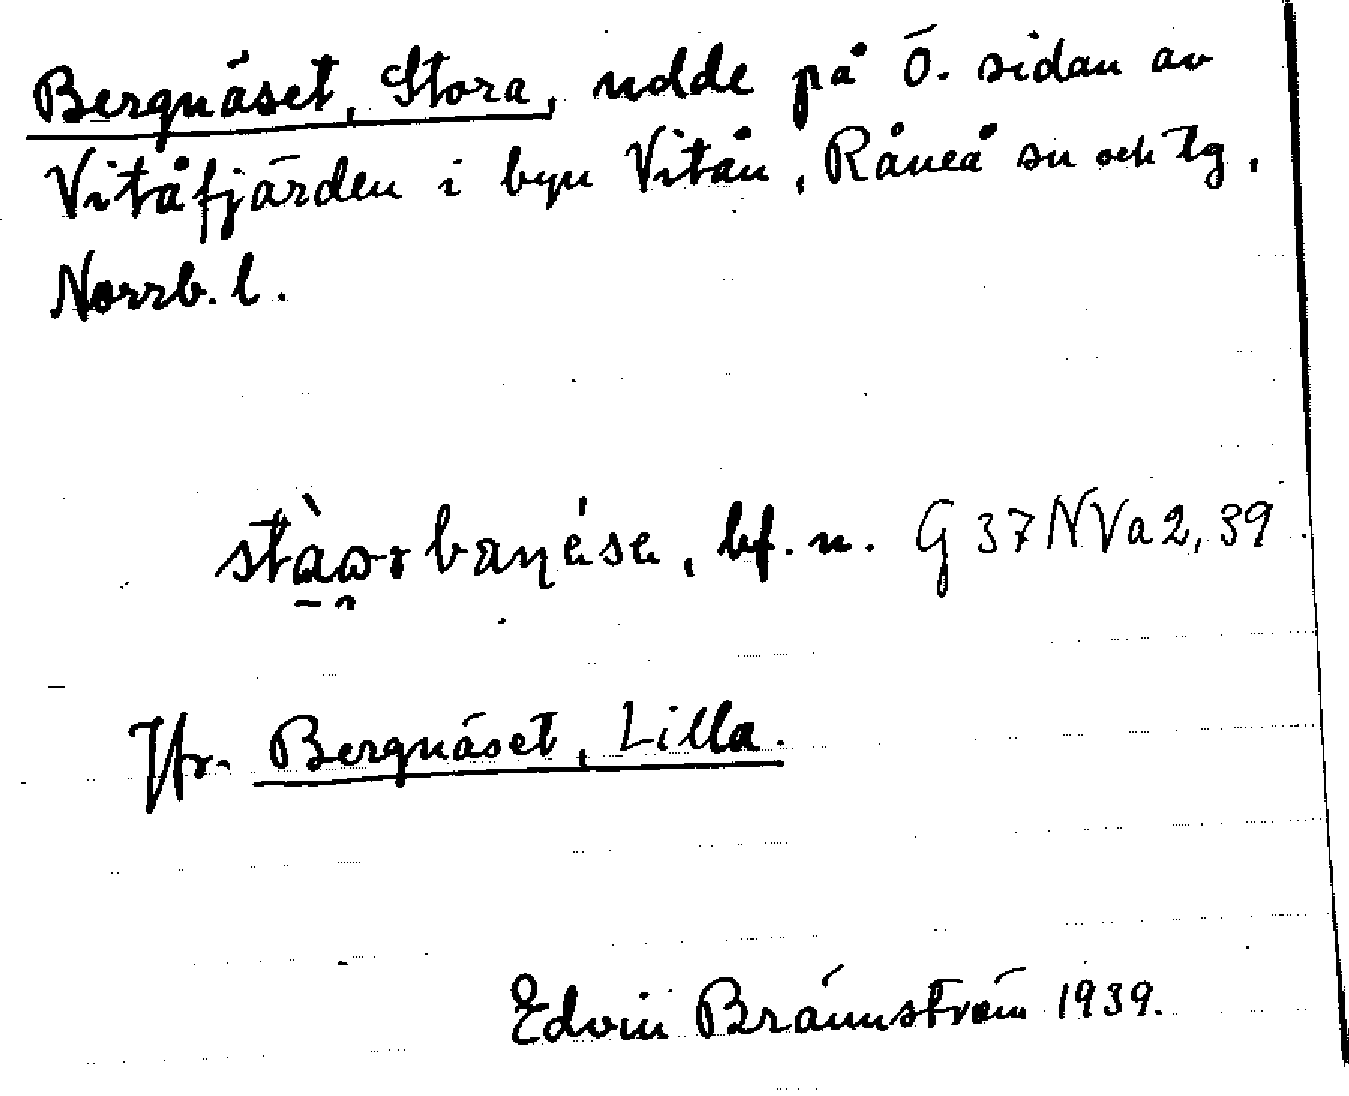 Bergnäset, Stora, udde på Ö. sidan av
Vitåfjärden i byn Vitån, Råneå sn och tg,
Norrb. l.
bf. n. G 37 N Va 2, 39
Jfr. Bergnäset, Lilla.
Edvin Brännström 1939.